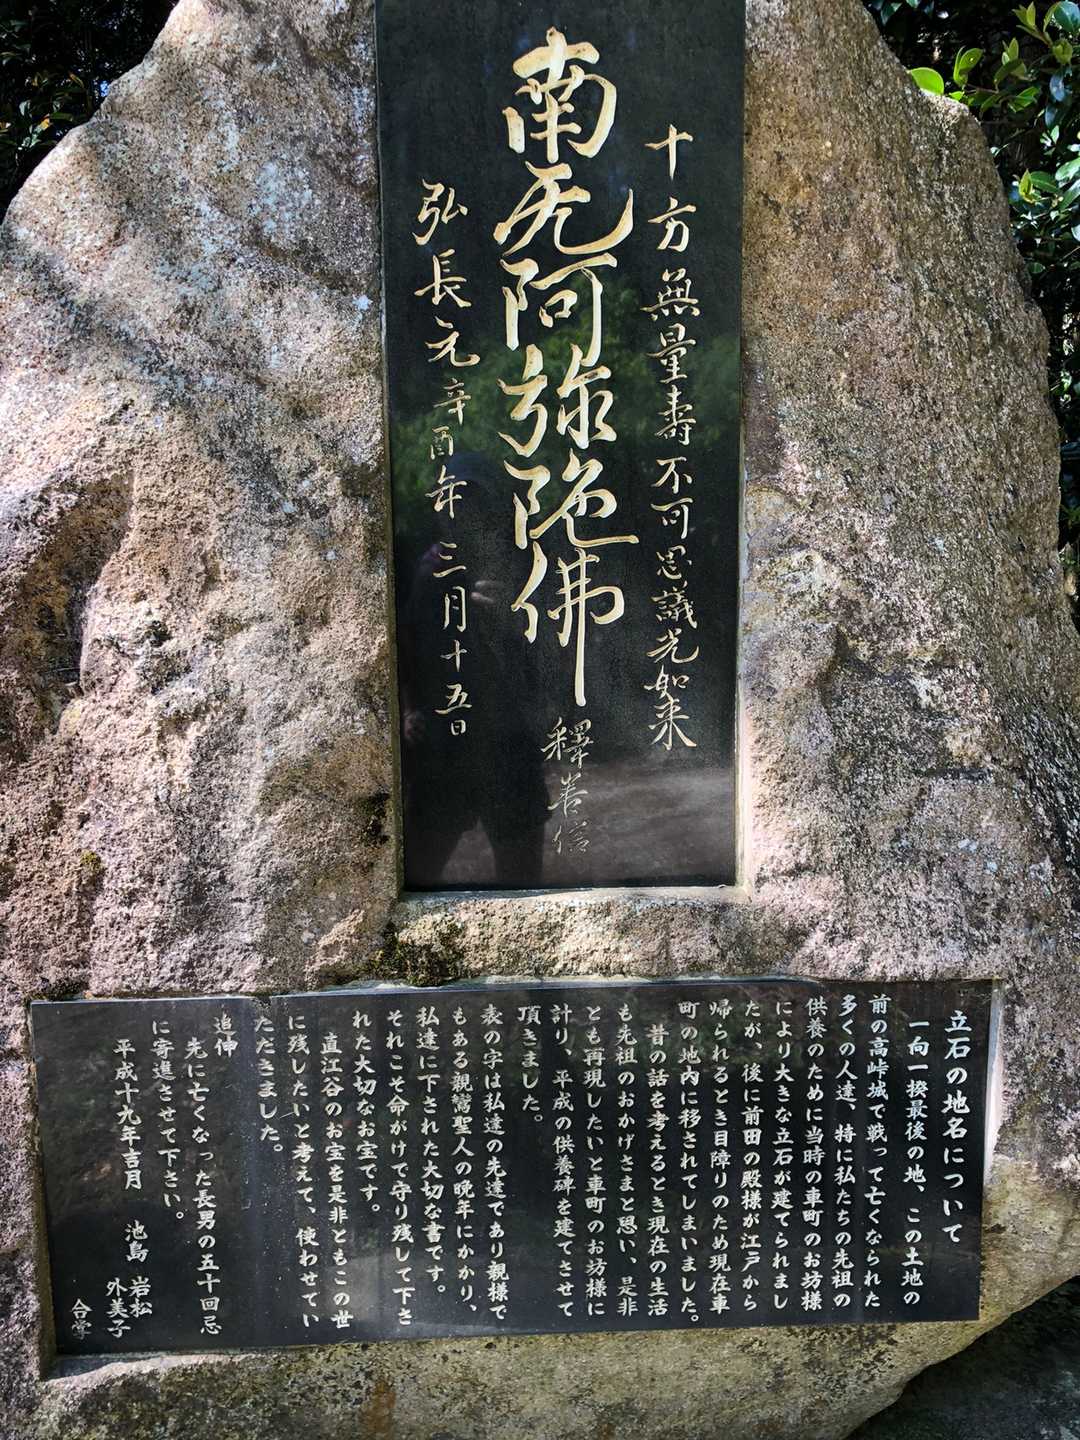 十方無量壽不可思議光如来
南无阿弥陀佛
釋善信
弘長元辛酉年三月十五日
立石の地名について
一向一揆最後の地、この土地の
前の高峠城で戦って亡くなられた
多くの人達、特に私たちの先祖の
供養のために当時の車町のお坊様
により大きな立石が建てられまし
たが、後に前田の殿様が江戸から
帰られるとき目障りのため現在車
町の地内に移されてしまいました。
昔の話を考えるとき現在の生活
も先祖のおかげさまと思い、是非
とも再現したいと車町のお坊様に
計り、平成の供養碑を建てさせて
頂きました。
表の字は私達の先達であり親様で
もある親鸞聖人の晩年にかかり、
私達に下された大切な書です。
それこそ命がけで守り残して下さ
れた大切なお宝です。
直江谷のお宝を是非ともこの世
に残したいと考えて、使わせてい
ただきました。
追伸
先に亡くなった長男の五十回忌
に寄進させて下さい。
平成十九年吉月
池島 岩松
外美子
合掌